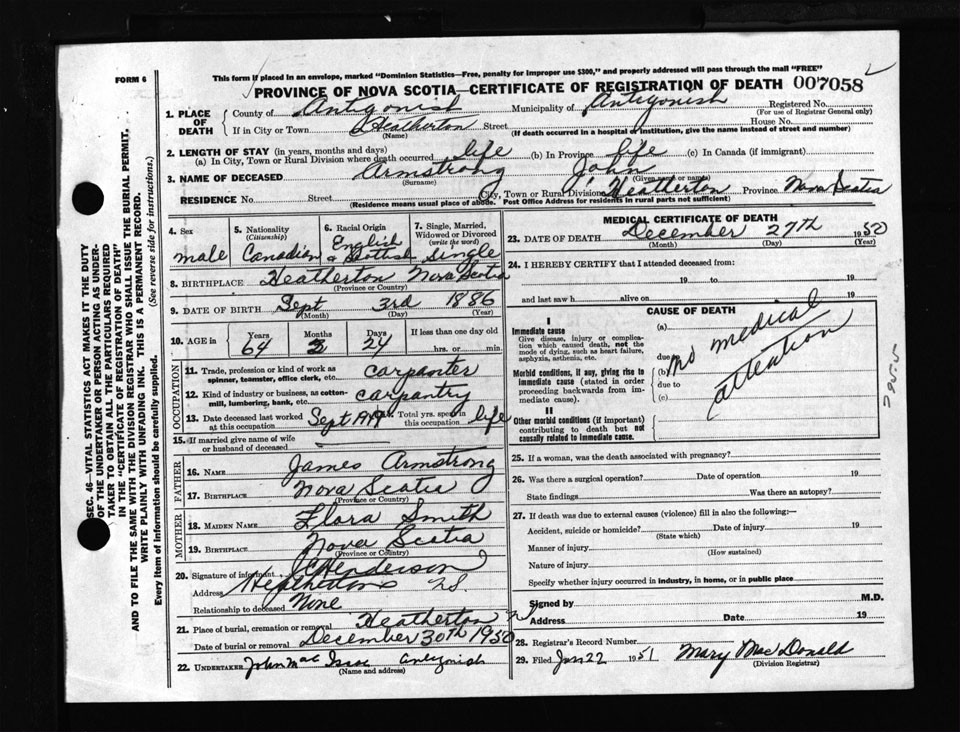 FORM 6
This form if placed in an envelope, marked "Dominion Statistics—Free, penalty for improper use $300," and properly addressed will pass through the mail "FREE"
PROVINCE OF NOVA SCOTIA—CERTIFICATE OF REGISTRATION OF DEATH 007058
1. PLACE OF DEATH County of Antigonish Municipality of Antigonish Registered No.
(For use of Registrar General only)
If in City or Town Heatherton Street House No.
(Name) (If death occurred in a hospital or institution, give the name instead of street and number)
2. LENGTH OF STAY (in years, months and days)
(a) In City, Town or Rural Division where death occurred life (b) In Province life (c) In Canada (if immigrant)
3. NAME OF DECEASED Armstrong John
(Surname) (Given name or names)
RESIDENCE No. Street City, Town or Rural Division Heatherton Province Nova Scotia
(Residence means usual place of abode. Post Office Address for residents in rural parts not sufficient)
4. Sex male
5. Nationality (Citizenship) Canadian
6. Racial Origin English & Scottish
7. Single, Married, Widowed or Divorced (write the word) Single
8. BIRTHPLACE Heatherton Nova Scotia
(Province or Country)
9. DATE OF BIRTH Sept 3rd 1886
(Month) (Day) (Year)
10. AGE in Years 64 Months 3 Days 24 If less than one day old hrs. or min.
OCCUPATION
11. Trade, profession or kind of work as spinner, teamster, office clerk, etc. carpanter
12. Kind of industry or business, as cotton-mill, lumbering, bank, etc. carpantry
13. Date deceased last worked at this occupation Sept Total yrs. spent in this occupation life
15. If married give name of wife or husband of deceased
FATHER
16. NAME James Armstrong
17. BIRTHPLACE Nova Scotia
(Province or Country)
MOTHER
18. MAIDEN NAME Flora Smith
19. BIRTHPLACE Nova Scotia
(Province or Country)
20. Signature of informant Henderson
Address Heatherton N.S.
Relationship to deceased None
21. Place of burial, cremation or removal Heatherton
Date of burial or removal December 30th 1950
22. UNDERTAKER John Mac Isaac Antigonish
(Name and address)
MEDICAL CERTIFICATE OF DEATH
23. DATE OF DEATH December 27th 1950
(Month) (Day) (Year)
24. I HEREBY CERTIFY that I attended deceased from:
19 to 19
and last saw h alive on 19
CAUSE OF DEATH
I
Immediate cause
Give disease, injury or complication which caused death, not the mode of dying, such as heart failure, asphyxia, asthenia, etc.
Morbid conditions, if any, giving rise to immediate cause (stated in order proceeding backwards from immediate).
II
Other morbid conditions (if important) contributing to death but not causally related to immediate cause.
(a)
due to
(b)
due to
(c)
no medical attention
795.5
25. If a woman, was the death associated with pregnancy?
26. Was there a surgical operation? Date of operation 19
State findings Was there an autopsy?
27. If death was due to external causes (violence) fill in also the following:—
Accident, suicide or homicide? Date of injury 19
(State which)
Manner of injury
(How sustained)
Nature of injury
Specify whether injury occurred in industry, in home, or in public place
Signed by M.D.
Address Date 19
28. Registrar's Record Number
29. Filed Jan 22 1951 Mary MacDonald
(Division Registrar)
SEC. 46—VITAL STATISTICS ACT MAKES IT THE DUTY
OF THE UNDERTAKER OR PERSON ACTING AS UNDER-
TAKER TO OBTAIN ALL THE PARTICULARS REQUIRED
IN THE "CERTIFICATE OF REGISTRATION OF DEATH"
AND TO FILE THE SAME WITH THE DIVISION REGISTRAR WHO SHALL ISSUE THE BURIAL PERMIT.
WRITE PLAINLY WITH UNFADING INK. THIS IS A PERMANENT RECORD.
Every item of information should be carefully supplied. (See reverse side for instructions.)